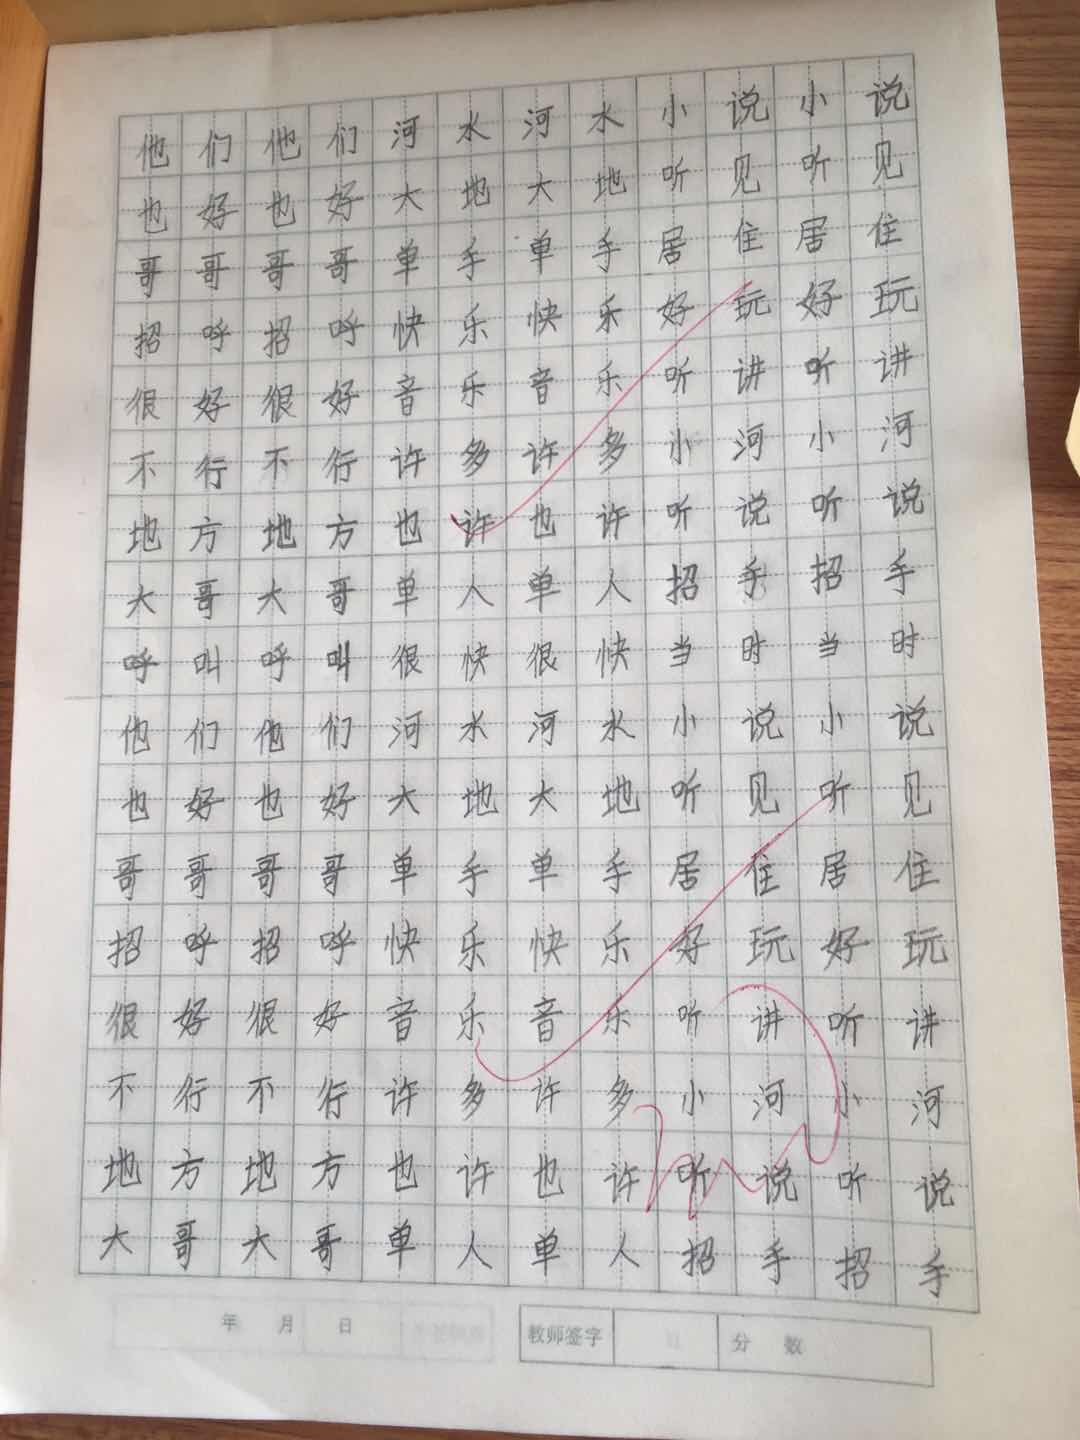 他们他们河水河水小说小说
也好也好大地大地听见听见
哥哥哥哥单手单手居住居住
招呼招呼快乐快乐好玩好玩
很好很好音乐音乐听讲听讲
不行不行许多许多小河小河
地方地方也许也许听说听说
大哥大哥单人单人招手招手
呼叫呼叫很快很快当时当时
他们他们河水河水小说小说
也好也好大地大地听见听见
哥哥哥哥单手单手居住居住
招呼招呼快乐快乐好玩好玩
很好很好音乐音乐听讲听讲
不行不行许多许多小河小河
地方地方也许也许听说听说
大哥大哥单人单人招手招手
年 月 日 教师签字 分 数